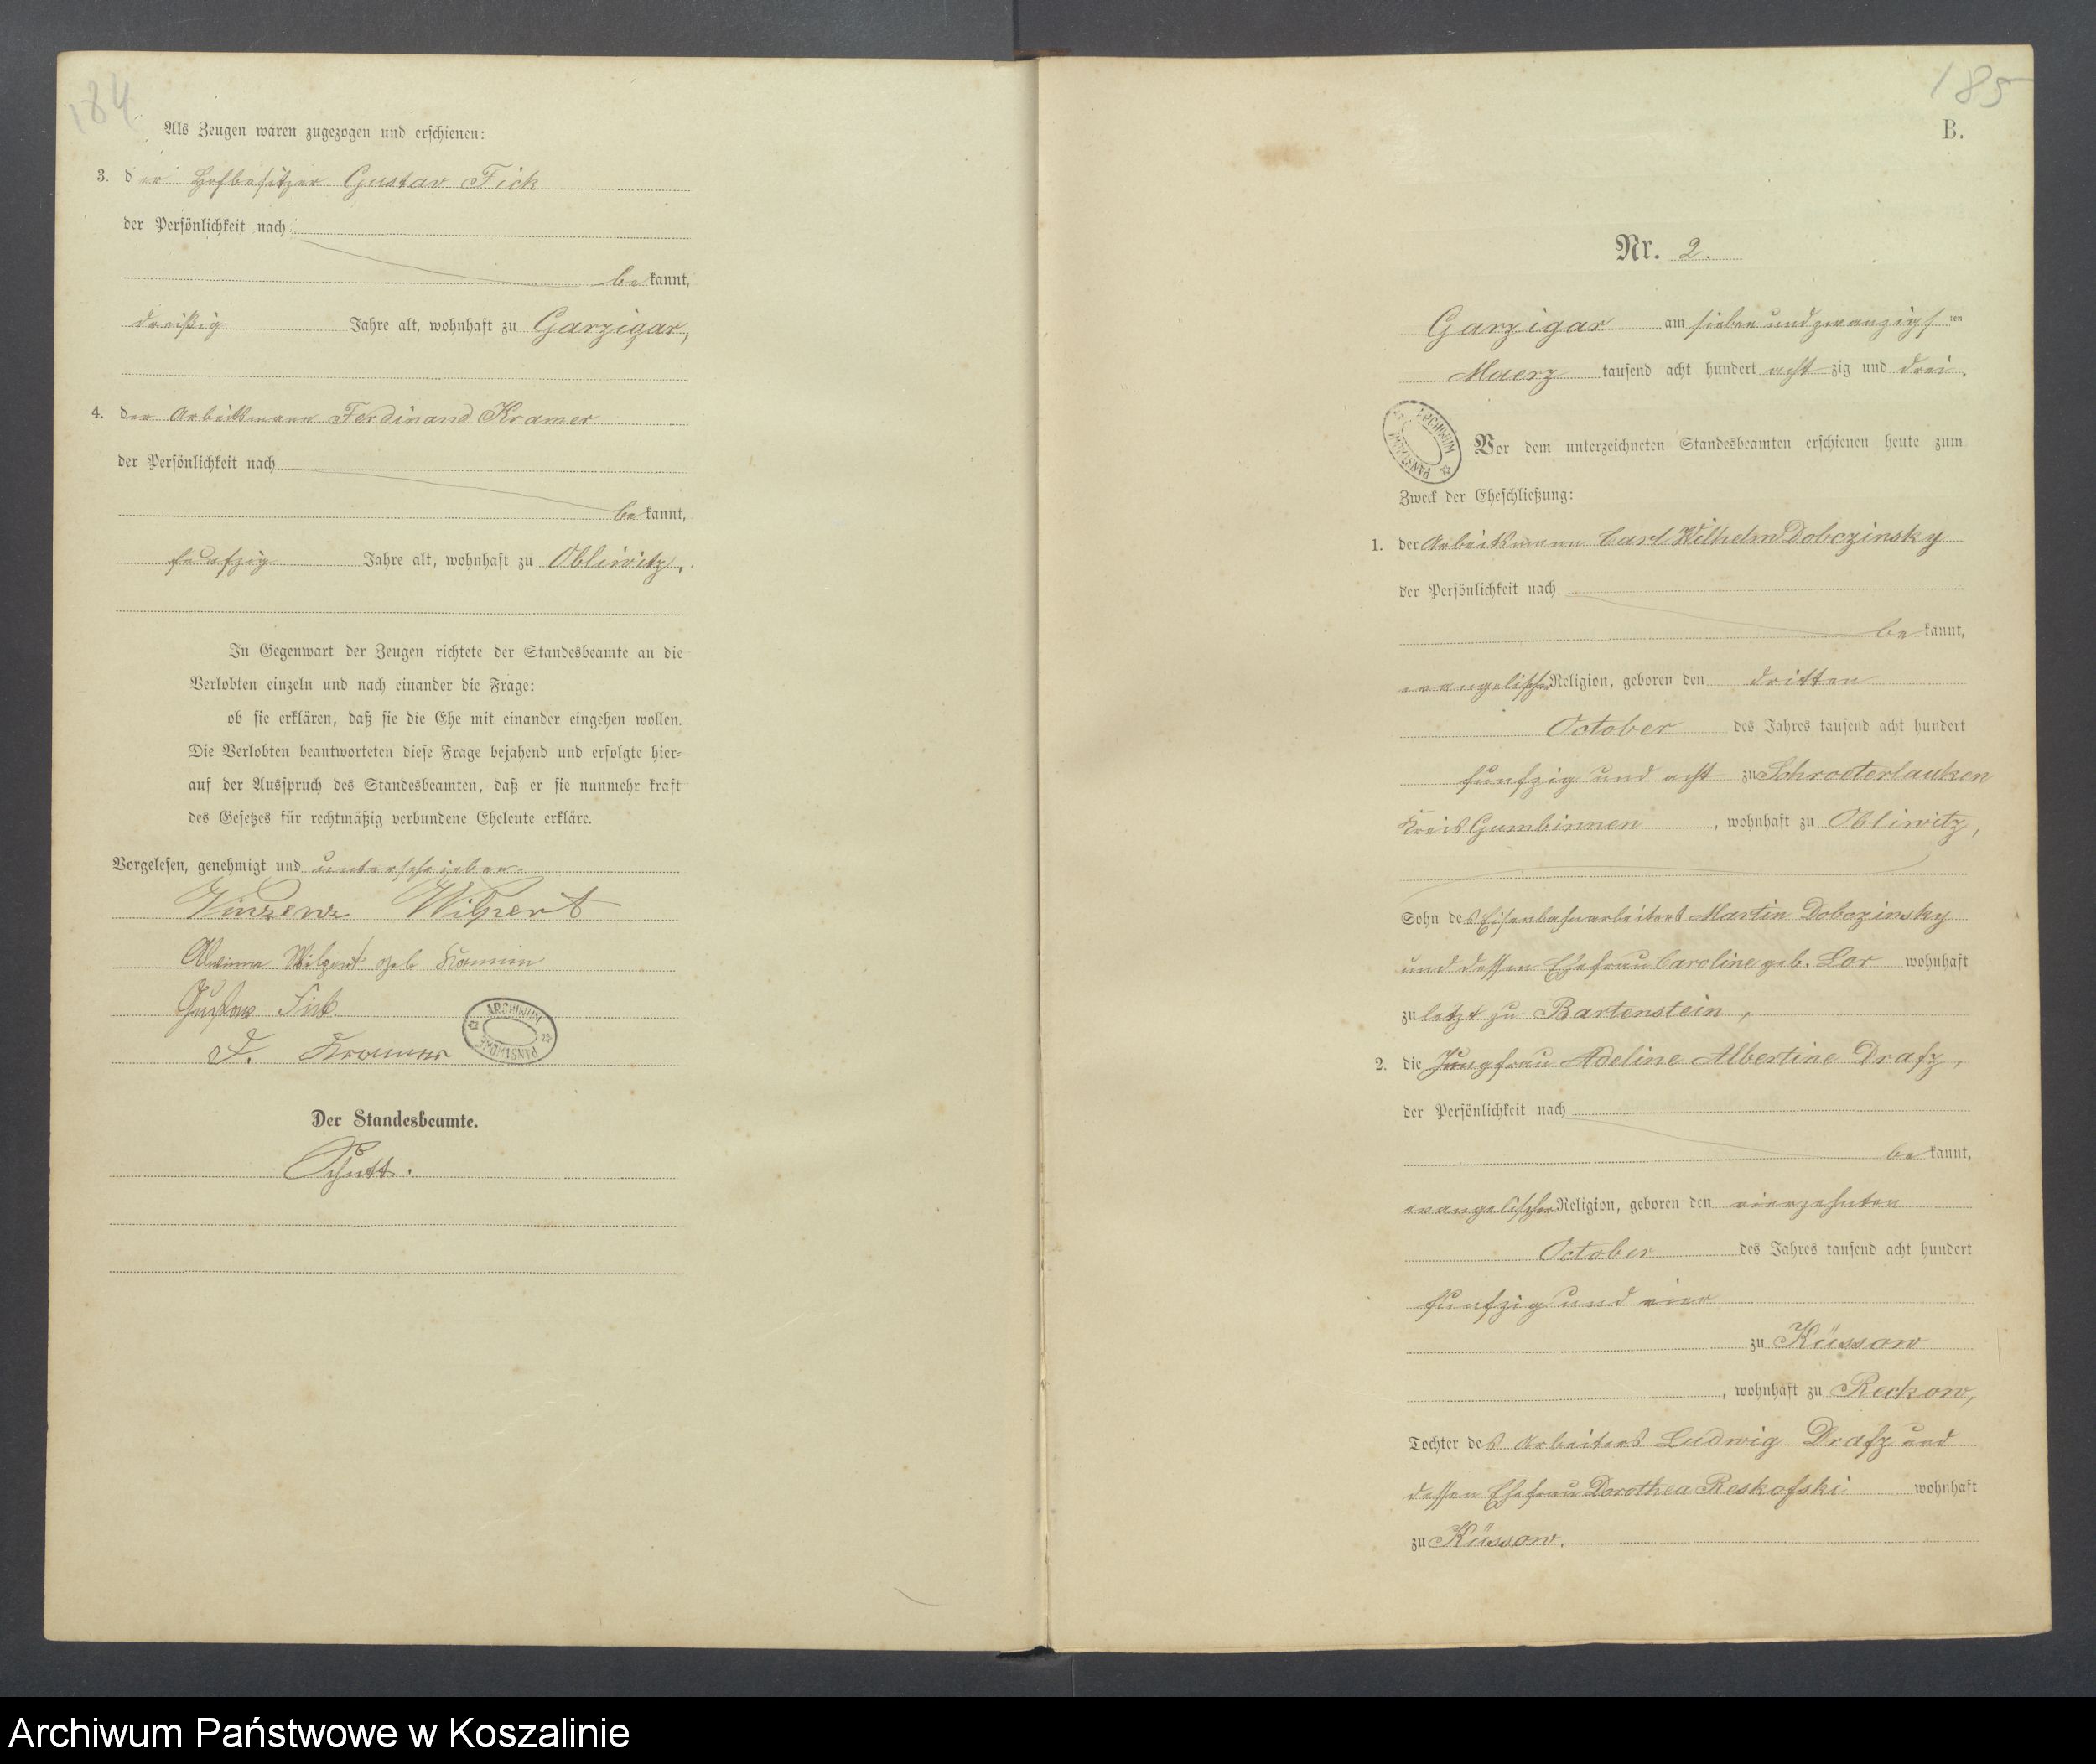 184
Als Zeugen waren zugezogen und erschienen:
3. der Hofbesitzer Gustav Fick
der Persönlichkeit nach
be kannt,
dreißig Jahre alt, wohnhaft zu Garzigar,
4. der Arbeitsmann Ferdinand Kramer
der Persönlichkeit nach
be kannt,
funfzig Jahre alt, wohnhaft zu Obliwitz,
In Gegenwart der Zeugen richtete der Standesbeamte an die
Verlobten einzeln und nach einander die Frage:
ob sie erklären, daß sie die Ehe mit einander eingehen wollen.
Die Verlobten beantworteten diese Frage bejahend und erfolgte hier-
auf der Ausspruch des Standesbeamten, daß er sie nunmehr kraft
des Gesetzes für rechtmäßig verbundene Eheleute erkläre.
Vorgelesen, genehmigt und unterschrieben.
Vinzenz Wilpert
Wilpert geb Kamin
Gustav Fick
F. Kramer
ARCHIWUM PAŃSTWOWE
Der Standesbeamte.
185
B.
Nr. 2.
Garzigar am sieben und zwanzigsten
Maerz tausend acht hundert acht zig und drei.
ARCHIWUM PAŃSTWOWE
Vor dem unterzeichneten Standesbeamten erschienen heute zum
Zweck der Eheschließung:
1. der Arbeitsmann Carl Wilhelm Dobczinsky
der Persönlichkeit nach
be kannt,
evangelischer Religion, geboren den dritten
October des Jahres tausend acht hundert
funfzig und acht zu Schroeterlauken
Kreis Gumbinnen, wohnhaft zu Obliwitz,
Sohn des Eisenbahnarbeiters Martin Dobczinsky
und dessen Ehefrau Caroline geb. Lor wohnhaft
zuletzt zu Bartenstein,
2. die Jungfrau Adeline Albertine Drafz,
der Persönlichkeit nach
be kannt,
evangelischer Religion, geboren den vierzehnten
October des Jahres tausend acht hundert
funfzig und vier
zu Küssow
, wohnhaft zu Reckow,
Tochter des Arbeiters Ludwig Drafz und
dessen Ehefrau Dorothea Reskofski wohnhaft
zu Küssow.
Archiwum Państwowe w Koszalinie